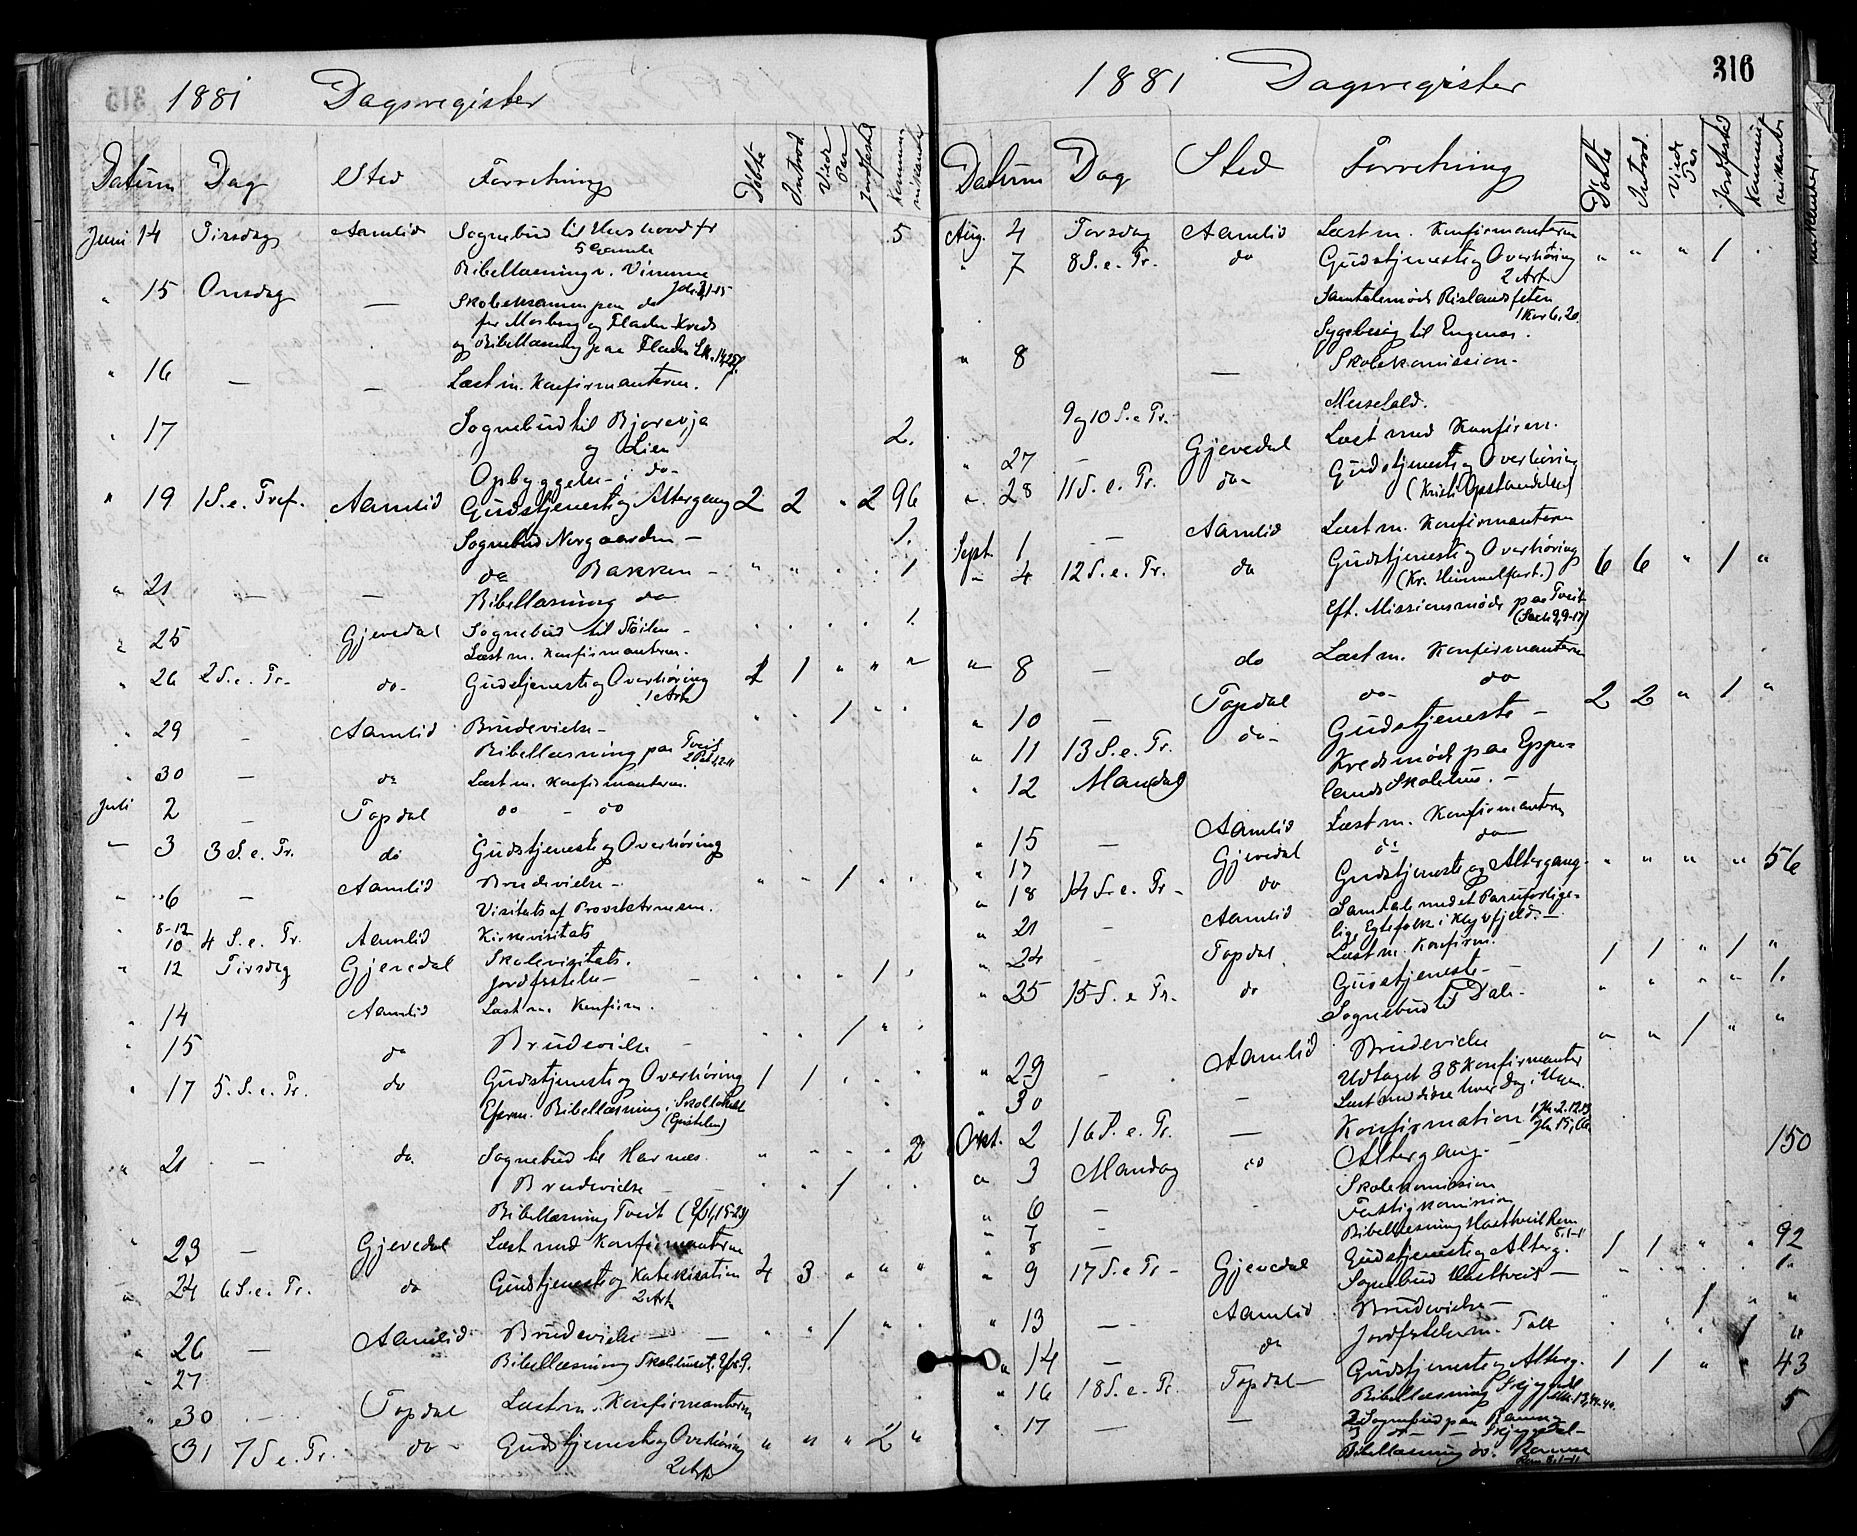 1881 Dagsregister
Datum Dag Sted Forretning Døbte Introd. Viede Par Jordfæstede Kommunikanter
Juni 14 Tirsdag Aamlid Sognebud til 5
5 Gamle
Bibellæsning v. Vimme
" 15 Onsdag — Skoleeksamen paa do
for og Fladen Kreds
og Bibellæsning paa Fladen
" 16 — — Læst m. Konfirmanterne.
" 17 Sognebud til Bjorvja 2.
og Lien
Opbyggelse i do
" 19 1 S. e. Tref. Aamlid Gudstjeneste og Altergang 2 2 " 2 96
Sognebud Nergaarden — 1.
do Bakken — " " . . 1
" 21 — — Bibellæsning do
" 25 Gjevedal Sognebud til Støilen — . . . . 1.
Læst m. Konfirmanterne.
" 26 2 S. e. Tr. do Gudstjeneste og Overhøring 1 1 " " "
1 Art
" 29 — Aamlid Brudevielse — " . 1 . .
Bibellæsning paa Tveit
" 30 — do Læst m. Konfirmanterne.
Juli 2 — Topdal do — do
— 3 3 S. e. Tr. do Gudstjeneste og Overhøring
" 6 — Aamlid Brudevielse — " " 1 . .
Visitats af Provst
" 8-12
10 4 S. e. Tr. Aamlid Kirkevisitats
" 12 Tirsdag Gjevedal Skolevisitats.
Jordfæstelse — . . . 1 .
" 14 Aamlid Læst m. Konfirm.
" 15 do Brudevielse — . . 1 " .
" 17 5. S. e. Tr. do Gudstjeneste og Overhøring 1 1 . . .
Efterm. Bibellæsning i Skolelokalet
" 21 — do. Sognebud til Harnes. " . . . 2
Brudevielse — . . 1 . .
Bibellæsning Tveit (Ef 1,15-23)
" 23 — Gjevedal Læst med Konfirmanterne
" 24 6 S. e. Tr. do Gudstjeneste og Katekisation 4 3 " " "
2 Art
" 26 — Aamlid Brudevielse — " " 1 " .
" 27 Bibellæsning Skolehuset
" 30 — Topdal Læst m. Konfirmanterne
31 7 S. e. Tr. do Gudstjeneste og Overhøring " " " 2 "
2 Art
1881 Dagsregister 316
Datum Dag Sted Forretning Døbte Introd. Viede Par Jordfæstede Kommunikanter
Aug. 4 Torsdag Aamlid Læst m. Konfirmanterne
" 7 8 S. e. Tr. do Gudstjeneste og Overhøring " " " 1 .
2 Art
Samtalemøde Rislandsfeten
1 Kor 6, 20.
Sygebesøg til Engenes.
" 8 — Skolekomission.
9 og 10 S. e. Tr. Messefald.
" 27 — Gjevedal Læst med Konfirm.
" 28 11 S. e. Tr. do Gudstjeneste og Overhøring
(Kristi Opstandelse)
Sept. 1 — Aamlid Læst m. Konfirmanterne
" 4 12 S. e. Tr. do Gudstjeneste og Overhøring 6 6 " 1 "
(Kr. Himmelfart.)
Eft. Missionsmøde paa Tveit
" 8 — do Læst m. Konfirmanterne
" 10 — Topdal do do
" 11 13 S. e. Tr. do Gudstjeneste — 2 2 " 1 "
" 12 Mandag Kredsmøde paa Eppe-
lands Skolehus. —
" 15 — Aamlid Læst m. Konfirmanterne
" 17 Gjevedal do do
" 18 14 S. e. Tr. do Gudstjeneste og Altergang. " " " " 56
" 21 — Aamlid Samtale med et Par uforlige-
lige Egtefolk i
" 24 — Topdal Læst m. Konfirm.
" 25 15 S. e. Tr. do Gudstjeneste — 1 1 " 1 "
Sognebud til Dale. " " " " 1.
" 29 — Aamlid Brudevielse " " 1 " "
" 30 — Udtaget 38 Konfirmanter
Læst med disse hver Dag i Ugen.
Okt. 2 16 S. e. Tr. — Konfirmation
" 3 Mandag do Altergang — 150
" 6 — Skolekomission
" 7 — Fattigkomission
" 8 — Bibellæsning Hasttveit Rom
5.1-11
" 9 17 S. e. Tr. Gjevedal Gudstjeneste og Alterg. 1 1 " " 92
Sognebud Hasttveit — 1.
" 13 — Aamlid Brudevielse — 1 " "
" 14 — do Jordfæstelse m. Tale . . " 1 "
" 16 18 S. e. Tr. Topdal Gudstjeneste og Alterg. 1 1 " " 43
Bibellæsning Skjeggedal
" 17 — — 2 Sognebud paa Ramse 5
3 do — Skjeggedal
Bibellæsning do. Ramse
Rom 5, 1-11